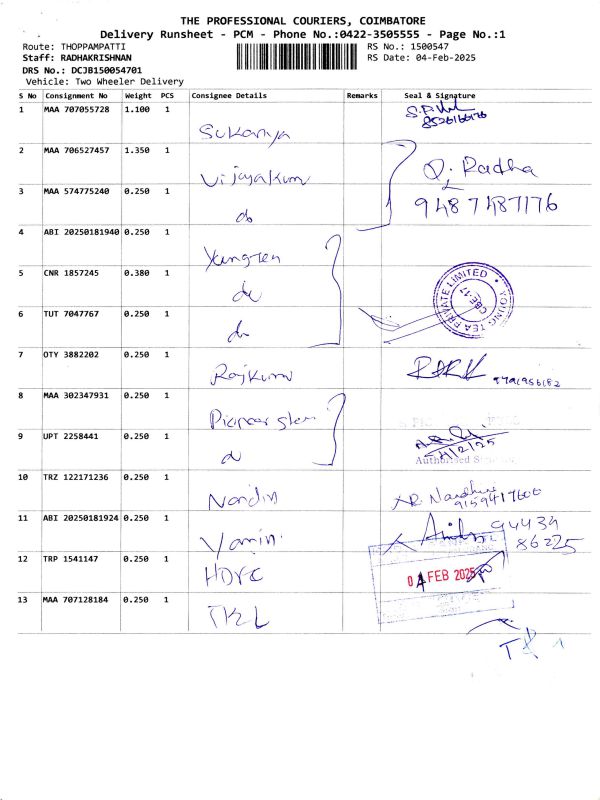 THE PROFESSIONAL COURIERS, COIMBATORE
Delivery Runsheet - PCM - Phone No.:0422-3505555 - Page No.:1
Route: THOPPAMPATTI RS No.: 1500547
Staff: RADHAKRISHNAN RS Date: 04-Feb-2025
DRS No.: DCJB150054701
Vehicle: Two Wheeler Delivery
S No Consignment No Weight PCS Consignee Details Remarks Seal & Signature
1 MAA 707055728 1.100 1
Sukanya
2 MAA 706527457 1.350 1
Vijayakum
Radha
3 MAA 574775240 0.250 1
do
9487487176
4 ABI 20250181940 0.250 1
5 CNR 1857245 0.380 1
do
YOUNG TEA PRIVATE LIMITED
CBE-17
6 TUT 7047767 0.250 1
do
7 OTY 3882202 0.250 1
Rajkum
9791956182
8 MAA 302347931 0.250 1
9 UPT 2258441 0.250 1
4/2/25
Authorised
10 TRZ 122171236 0.250 1
Nandin
9159417600
11 ABI 20250181924 0.250 1
Yamin
94439
86225
12 TRP 1541147 0.250 1
HDFC
04 FEB 2025
13 MAA 707128184 0.250 1
TKL